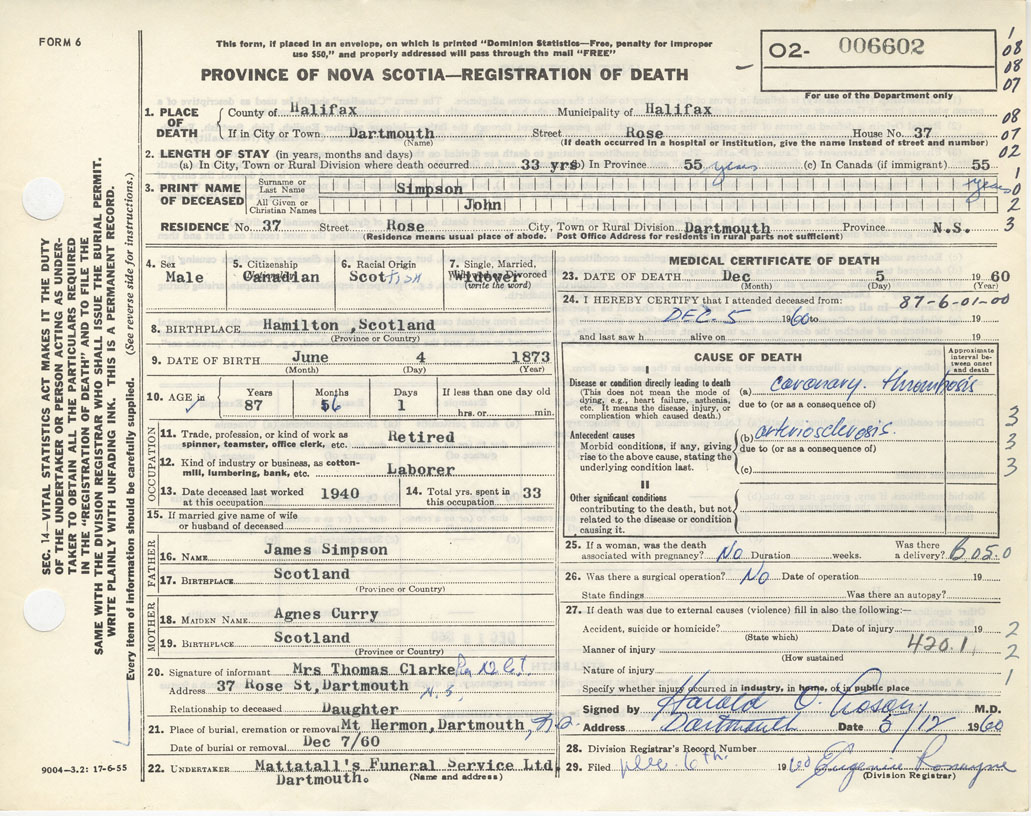 FORM 6
This form, if placed in an envelope, on which is printed "Dominion Statistics—Free, penalty for improper
use $50," and properly addressed will pass through the mail "FREE"
PROVINCE OF NOVA SCOTIA—REGISTRATION OF DEATH
O2- 006602
For use of the Department only
1
08
08
07
1. PLACE OF DEATH County of Halifax Municipality of Halifax
08
If in City or Town Dartmouth Street Rose House No. 37
07
(Name) (If death occurred in a hospital or institution, give the name instead of street and number)
2. LENGTH OF STAY (in years, months and days)
02
(a) In City, Town or Rural Division where death occurred 33 yrs (b) In Province 55 years (c) In Canada (if immigrant) 55 years
1
3. PRINT NAME OF DECEASED Surname or Last Name Simpson
2
All Given or Christian Names John
3
RESIDENCE No. 37 Street Rose City, Town or Rural Division Dartmouth Province N.S.
(Residence means usual place of abode. Post Office Address for residents in rural parts not sufficient)
4. Sex Male
5. Citizenship Canadian
6. Racial Origin Scottish
7. Single, Married, Widowed or Divorced (write the word) Widower
8. BIRTHPLACE Hamilton ,Scotland
(Province or Country)
9. DATE OF BIRTH June 4 1873
(Month) (Day) (Year)
10. AGE in Years Months Days If less than one day old
87 6 1 hrs. or min.
OCCUPATION
11. Trade, profession, or kind of work as spinner, teamster, office clerk, etc. Retired
12. Kind of industry or business, as cotton-mill, lumbering, bank, etc. Laborer
13. Date deceased last worked at this occupation 1940
14. Total yrs. spent in this occupation 33
15. If married give name of wife or husband of deceased
FATHER
16. NAME James Simpson
17. BIRTHPLACE Scotland
(Province or Country)
MOTHER
18. MAIDEN NAME Agnes Curry
19. BIRTHPLACE Scotland
(Province or Country)
20. Signature of informant Mrs Thomas Clarke
Address 37 Rose St,Dartmouth N.S.
Relationship to deceased Daughter
21. Place of burial, cremation or removal Mt Hermon,Dartmouth
Date of burial or removal Dec 7/60
22. UNDERTAKER Mattatall's Funeral Service Ltd
Dartmouth. (Name and address)
MEDICAL CERTIFICATE OF DEATH
23. DATE OF DEATH Dec 5 1960
(Month) (Day) (Year)
24. I HEREBY CERTIFY that I attended deceased from: 87-6-01-00
DEC. 5 1960 to 19
and last saw h alive on 19
CAUSE OF DEATH
Approximate interval between onset and death
I
Disease or condition directly leading to death
(This does not mean the mode of dying, e.g., heart failure, asthenia, etc. It means the disease, injury, or complication which caused death.)
(a) coronary thrombosis
due to (or as a consequence of)
3
Antecedent causes
Morbid conditions, if any, giving rise to the above cause, stating the underlying condition last.
(b) arteriosclerosis.
due to (or as a consequence of)
3
(c)
3
II
Other significant conditions
contributing to the death, but not related to the disease or condition causing it.
25. If a woman, was the death associated with pregnancy? No Duration weeks. Was there a delivery?
26. Was there a surgical operation? No Date of operation 19
State findings Was there an autopsy?
27. If death was due to external causes (violence) fill in also the following:—
Accident, suicide or homicide? Date of injury 19
2
(State which)
Manner of injury 420.1
2
(How sustained
Nature of injury
1
Specify whether injury occurred in industry, in home, or in public place
Signed by Harold O. M.D.
Address Dartmouth Date 5/12 1960
28. Division Registrar's Record Number
29. Filed Dec. 6th. 1960 Eugenie Romayne
(Division Registrar)
SEC. 14—VITAL STATISTICS ACT MAKES IT THE DUTY
OF THE UNDERTAKER OR PERSON ACTING AS UNDER-
TAKER TO OBTAIN ALL THE PARTICULARS REQUIRED
IN THE "REGISTRATION OF DEATH" AND TO FILE THE
SAME WITH THE DIVISION REGISTRAR WHO SHALL ISSUE THE BURIAL PERMIT.
WRITE PLAINLY WITH UNFADING INK. THIS IS A PERMANENT RECORD.
Every item of information should be carefully supplied. (See reverse side for instructions.)
9004—3.2: 17-6-55